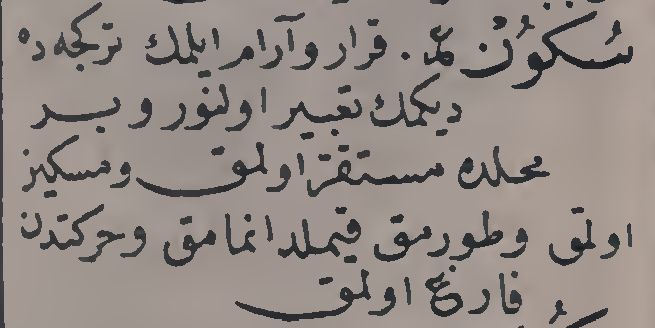 سُكُونْ قرار و آرام ايلمك تركجه ده
ديكمك تعبير اولنور و بر
محلده مستقر اولمق و مسكين
اولمق و طورمق قيملدانمامق و حركتدن
فارغ اولمق